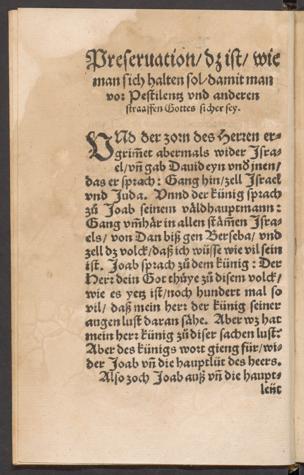 Preservation/ dz ist/ wie
man sich halten sol/ damit man
vor Pestilentz und anderen
straaffen Gottes sicher sey.
UNd der zorn des Herren er-
grim̃et abermals wider Jsra-
el/ vñ gab Dauid eyn vnd̕ jnen/
das er sprach: Gang hin/ zell Jsrael
vnd Juda. Vnnd der künig sprach
zů Joab seinem väldhauptmann:
Gang vm̃här in allen stäm̃en Jsra-
els/ von Dan biß gen Berseba/ vnd
zell dz volck/ daß ich wüsse wie vil sein
ist. Joab sprach zů dem künig: Der
Herr dein Got thüye zů disem volck/
wie es yetz ist/ noch hundert mal so
vil/ daß mein herr der künig seiner
augen lust daran sähe. Aber wz hat
mein herr künig zů diser sachen lust:
Aber des künigs wort gieng für/ wi-
der Joab vñ die hauptlüt des heers.
Also zoch Joab auß vñ die haupt-
leüt